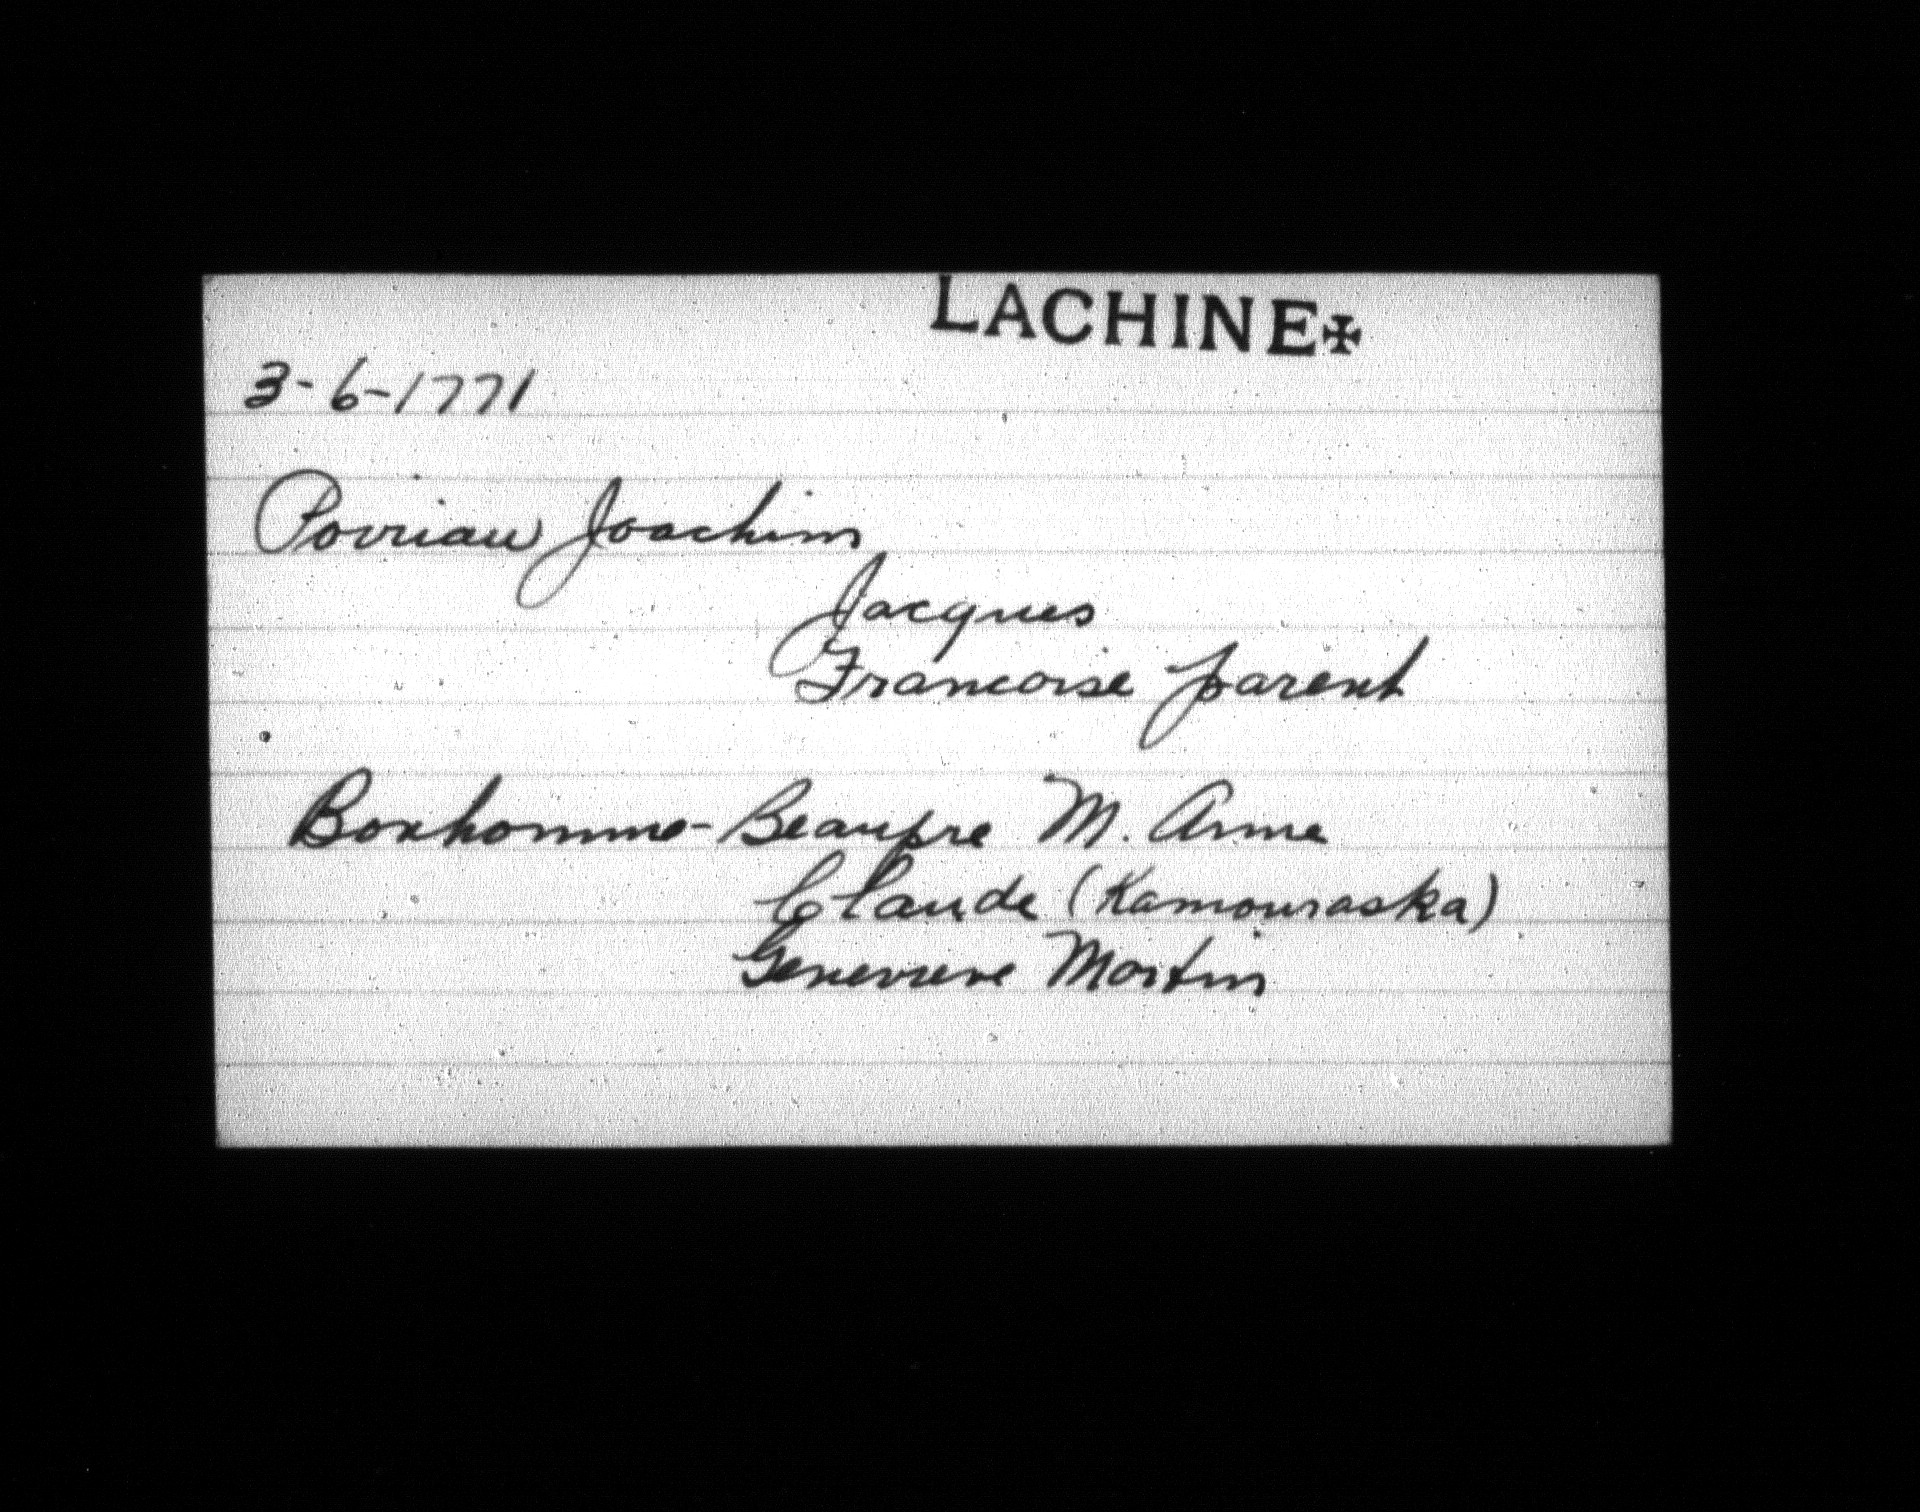 LACHINE✠
3-6-1771
Povriau Joachim
Jacques
Francoise Parent
Bonhomme-Beaupre M. Anne
Claude (Kamouraska)
Genevieve Martin